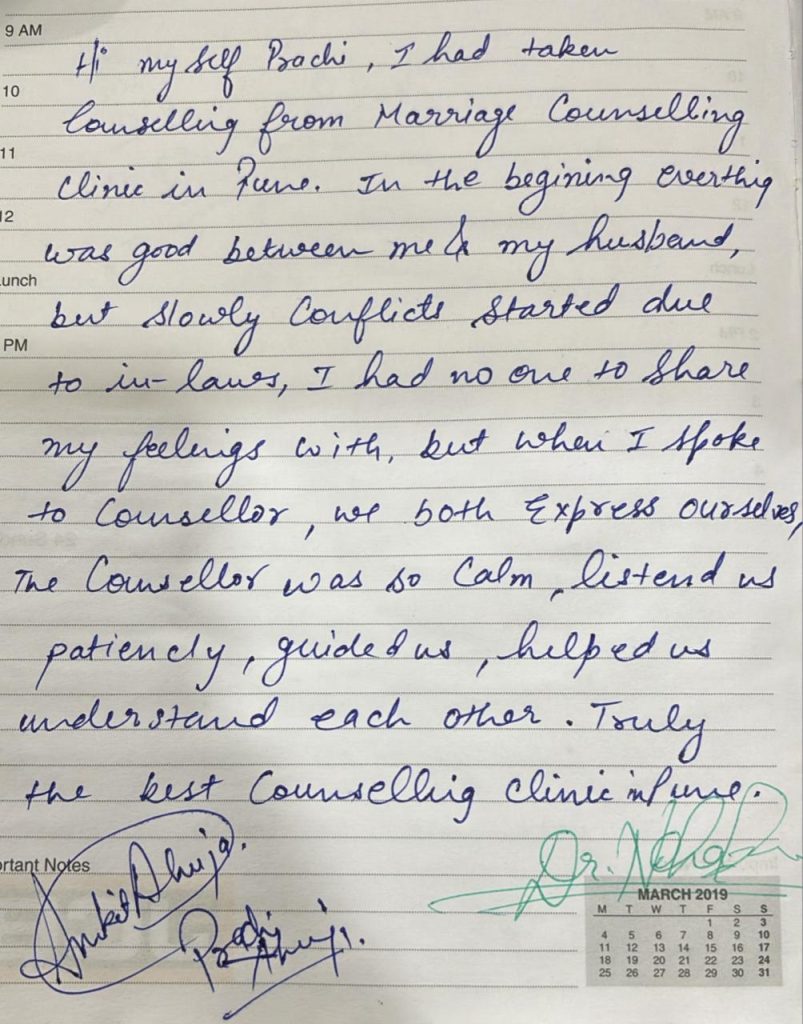 9 AM
Hi my self Prachi, I had taken
10
Counselling from Marriage Counselling
11
Clinic in Pune. In the begining everthig
12
was good between me & my husband,
unch
but slowly Conflicts started due
PM
to in-laws, I had no one to Share
my feelings with, but when I spoke
to Counsellor, we both Express ourselves,
The Counsellor was so Calm, listend us
patiencly, guided us, helped us
understand each other. Truly
the best Counsellig Clinic in Pune.
Ankit Ahuja.
Dr. Neha
rtant Notes
Prachi Ahuja.
MARCH 2019
M T W T F S S
1 2 3
4 5 6 7 8 9 10
11 12 13 14 15 16 17
18 19 20 21 22 23 24
25 26 27 28 29 30 31